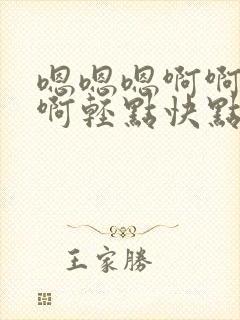 嗯嗯嗯啊啊
啊輕點快點
王家勝